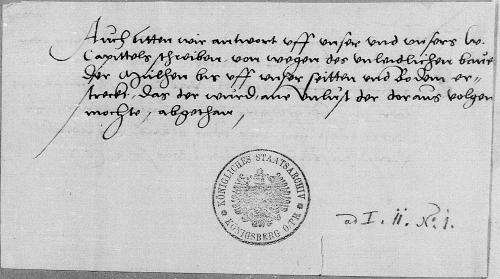 Auch bitten wir antwort uff unser und unsers W.
Capittels schreiben, von wegen des unleidlichen baues
der Mülhen bis uff unser seitten und Bodem er-
streckt, das der wurd, ane unlust der doraus volgen
mochte, abgethan,
KÖNIGLICHES STAATSARCHIV
KÖNIGSBERG O./PR.
ad I. 11. N. 1.